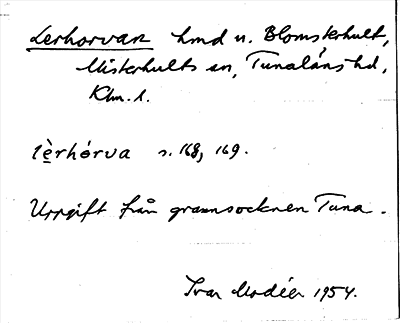 Lerhorvan hmd u. Blomsterhult,
Misterhults sn, Tunaläns hd,
Klm. l.
lèrhórva s. 168, 169.
Uppgift från grannsocknen Tuna.
Ivar Modéer 1954.